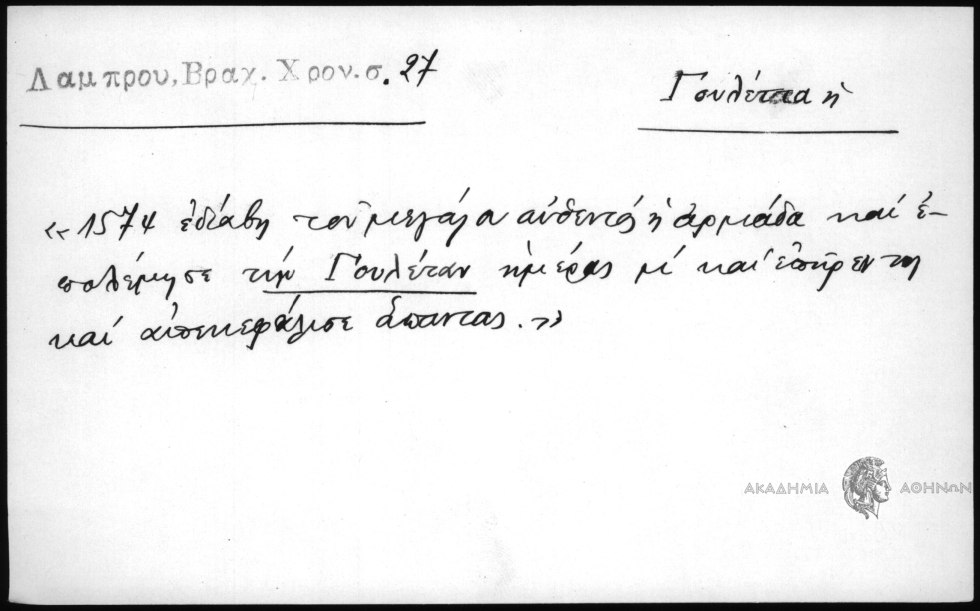 Λαμπρου, Βραχ. Χρον. σ. 27
Γουλέττα ἡ
«1574 ἐδιάβη τοῦ μεγάλα αὐθεντός ἡ ἀρμάδα καί ἐ-
πολέμησε τήν Γουλέταν ἡμέρας μί καί ἐπῆρεν τη
καί ἀπεκεφάλισε ἅπαντας.»
ΑΚΑΔΗΜΙΑ ΑΘΗΝΩΝ